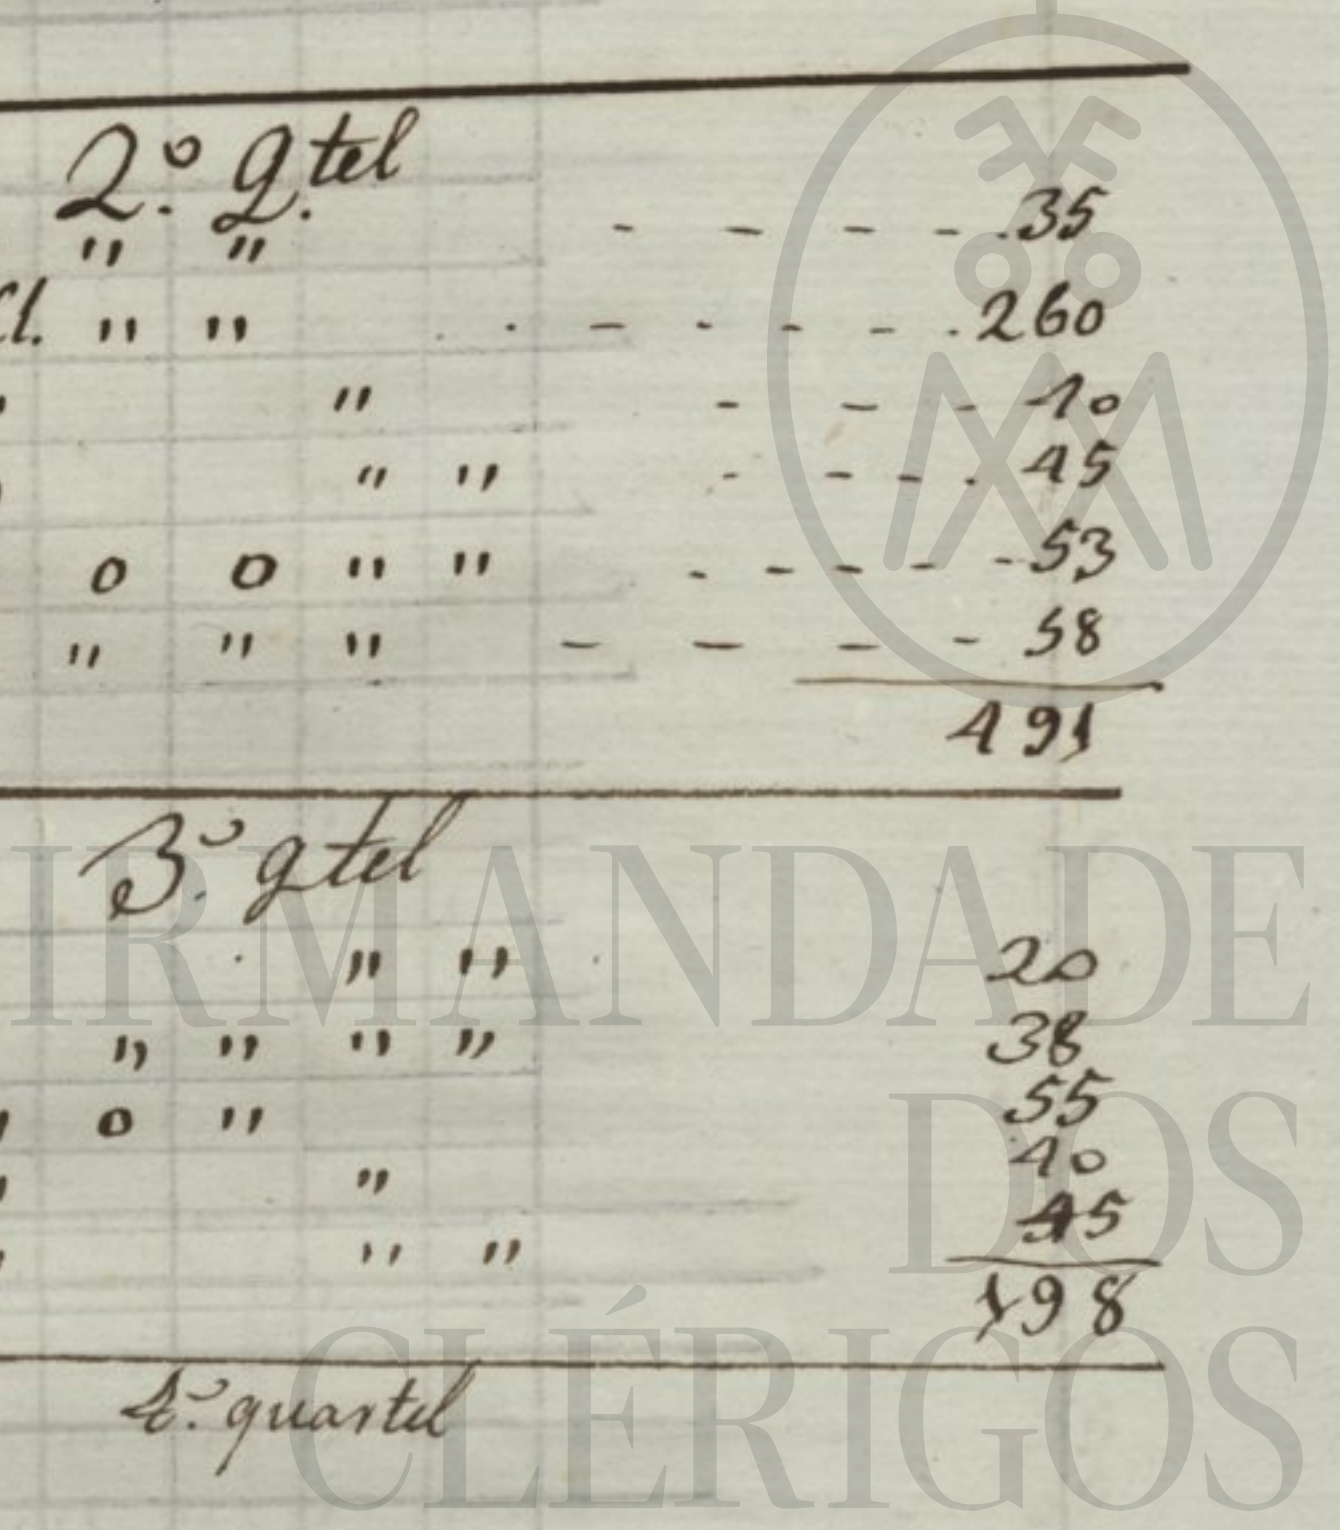 2.º Q.tel
" " - - - - . 35
Cl. " " . . - - - - . 260
" " - - - 40
" " - - - . 45
o o " " - - - - - 53
" " " - - - - 58
491
3.º qtel
" " 20
" " " " 38
" o " 55
" " 40
" " " 45
198
4.º quartel
IRMANDADE
DOS
CLÉRIGOS